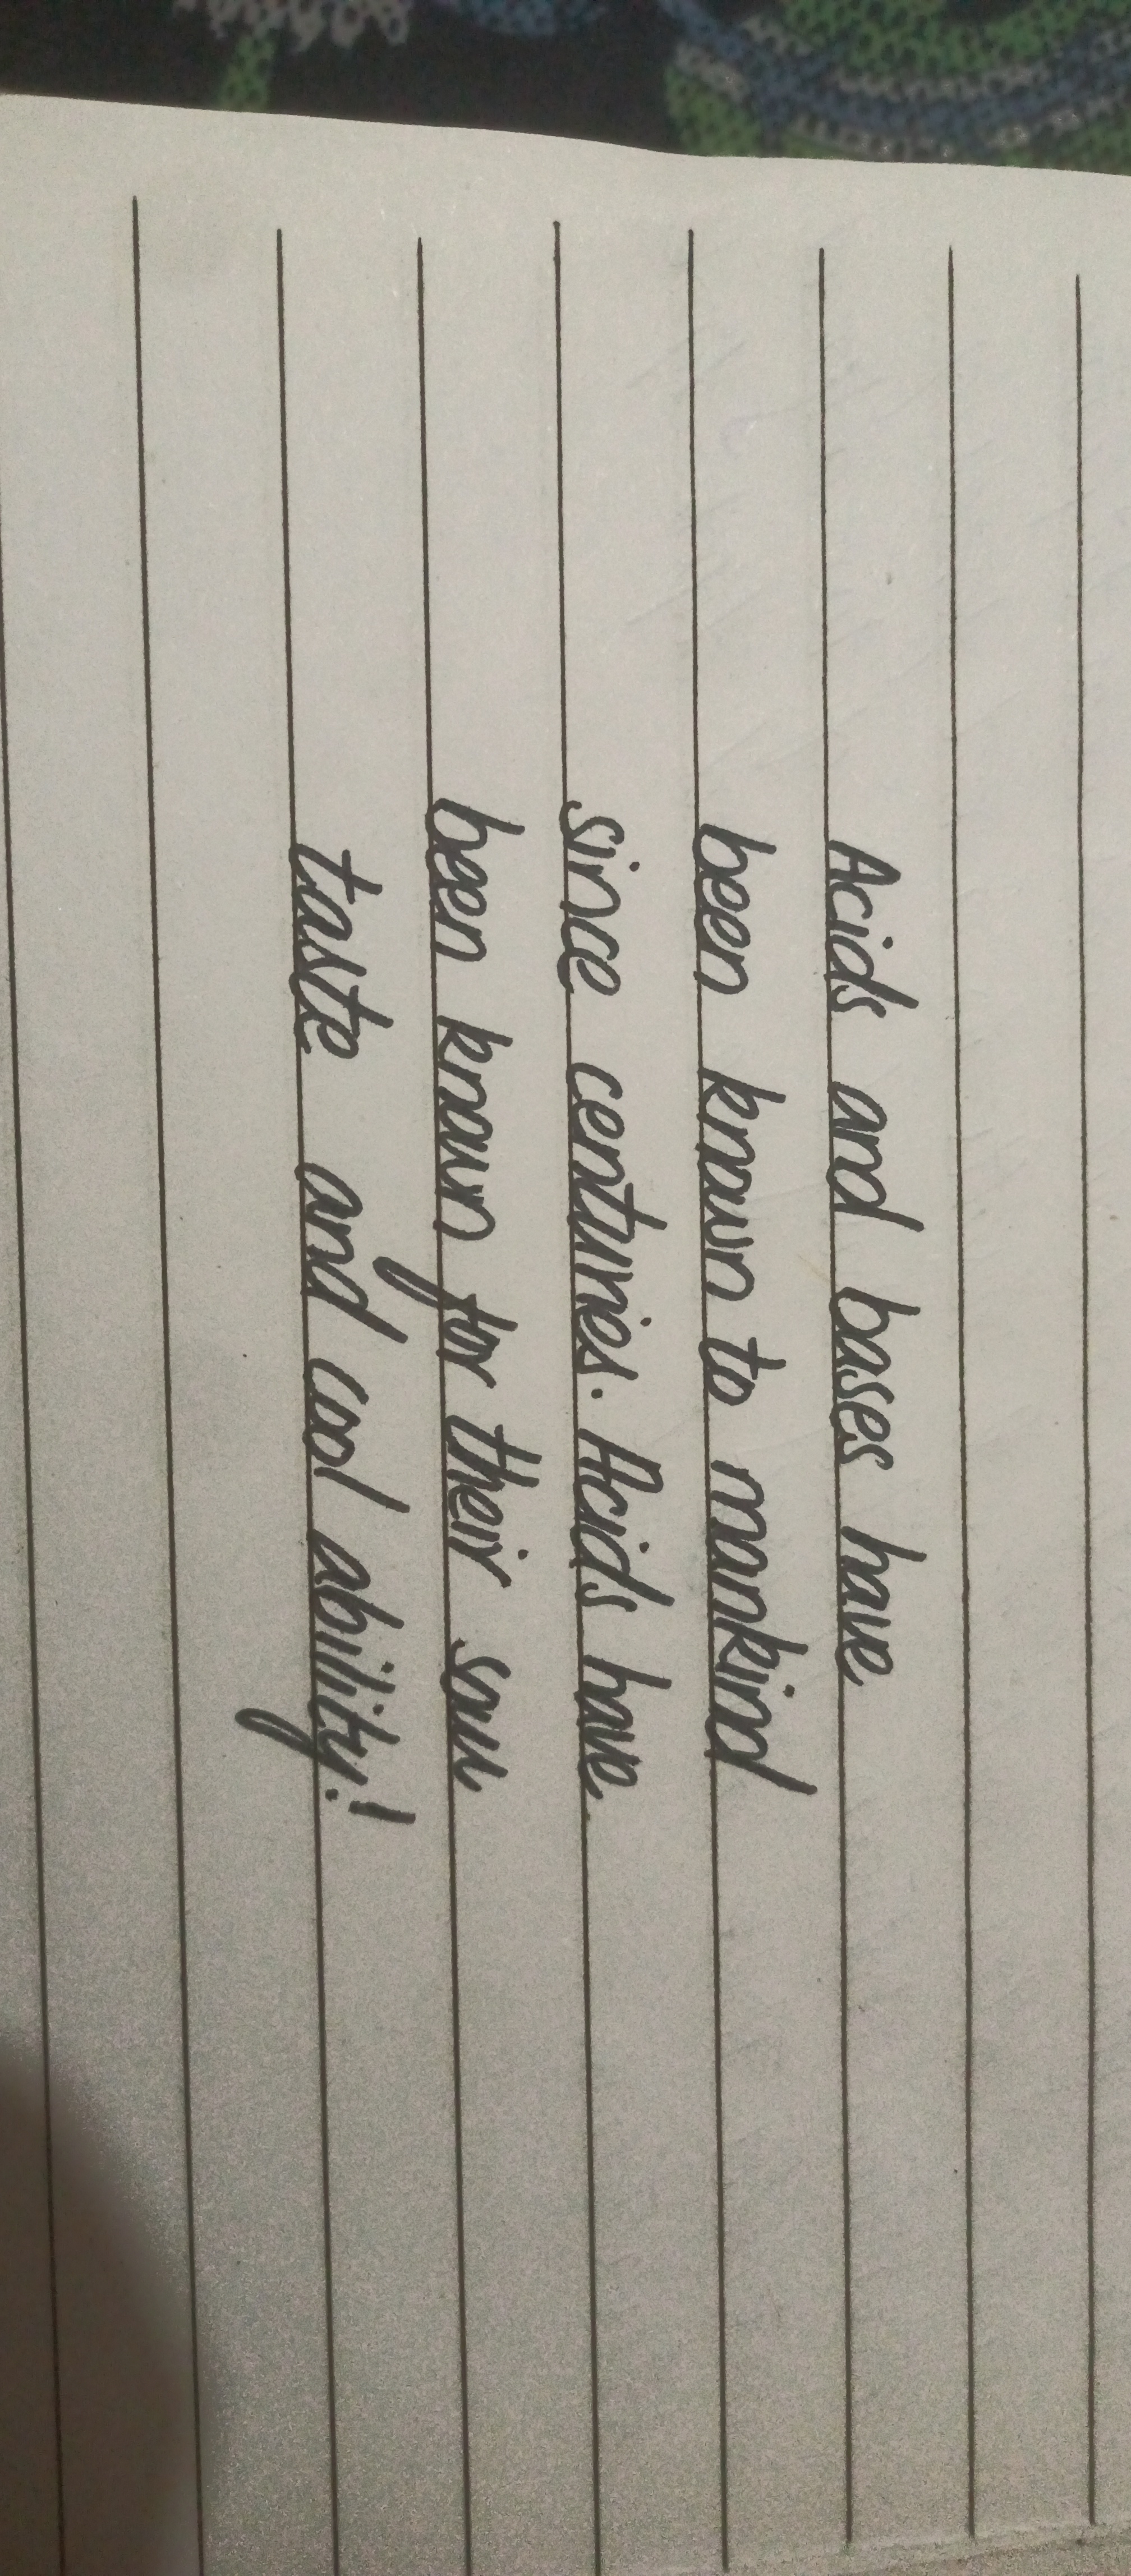 Acids and bases have
been known to mankind
since centuries. Acids have
been known for their sour
taste and cool ability!